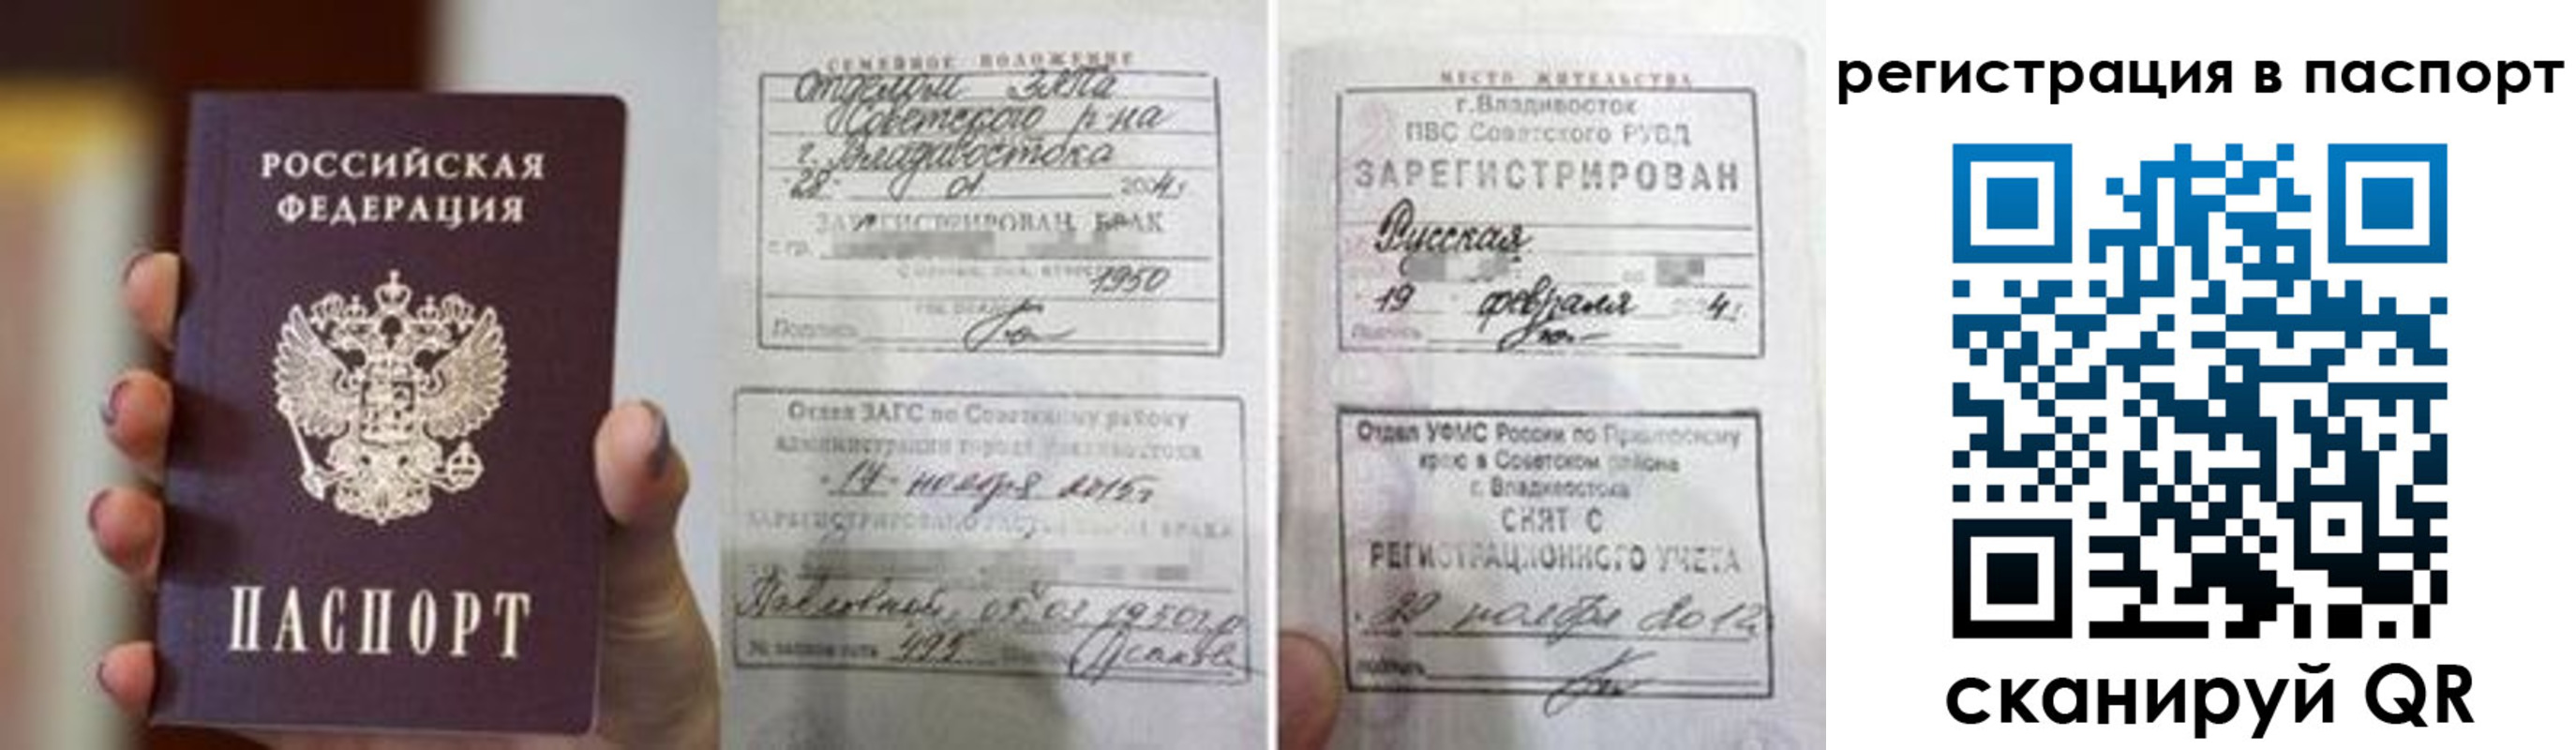 РОССИЙСКАЯ
ФЕДЕРАЦИЯ
ПАСПОРТ
СЕМЕЙНОЕ ПОЛОЖЕНИЕ
Отделом ЗАГСа
Советского р-на
г. Владивостока
"28" 01 2004г.
ЗАРЕГИСТРИРОВАН БРАК
с гр.
1950
Подпись
Отдел ЗАГС по Советскому району
администрации города Владивостока
"17" ноября 2015г
ЗАРЕГИСТРИРОВАНО РАСТОРЖЕНИЕ БРАКА
Павловной, 05.03.1950г.р
№ записи акта 495
МЕСТО ЖИТЕЛЬСТВА
г.Владивосток
ПВС Советского РУВД
ЗАРЕГИСТРИРОВАН
Русская
19 февраля 4г.
Подпись
Отдел УФМС России по Приморскому
краю в Советском районе
г. Владивостока
СНЯТ С
РЕГИСТРАЦИОННОГО УЧЕТА
ноября 2012
подпись
регистрация в паспорт
сканируй QR